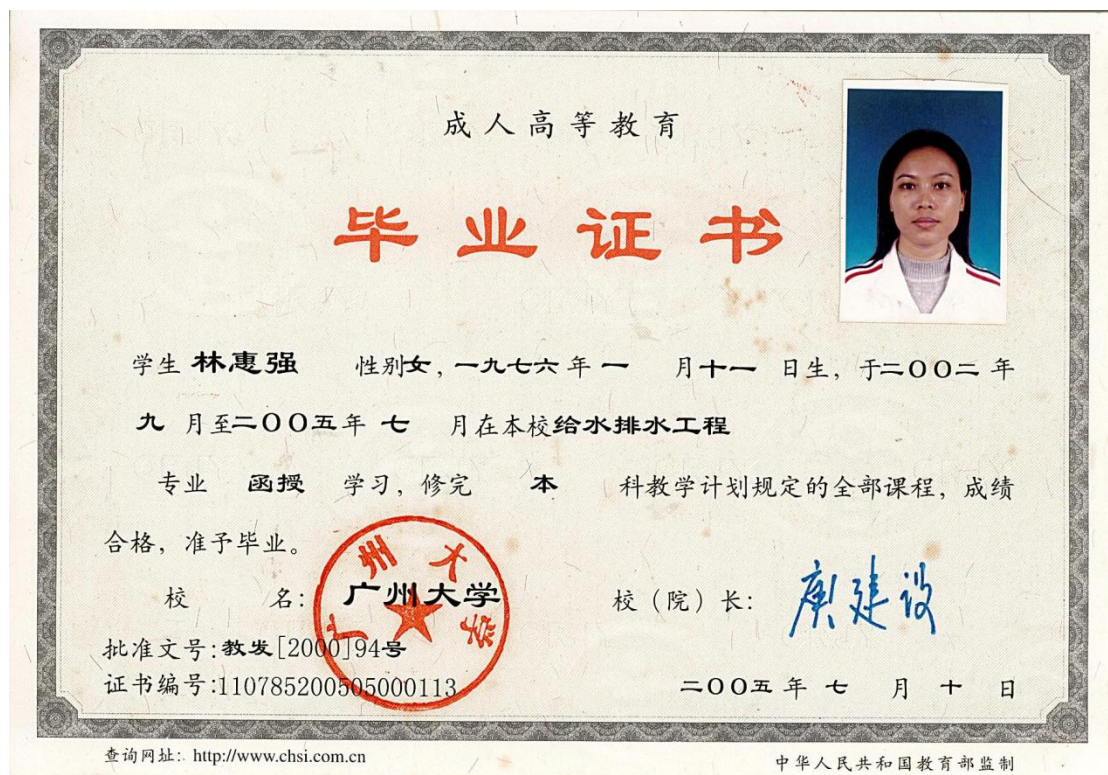 成人高等教育
毕业证书
学生 林惠强 性别女，一九七六年一 月十一 日生，于二〇〇二年
九 月至二〇〇五年 七 月在本校给水排水工程
专业 函授 学习，修完 本 科教学计划规定的全部课程，成绩
合格，准予毕业。
校 名：广州大学 校（院）长：庾建设
广州大学
批准文号：教发[2000]94号
证书编号：110785200505000113 二〇〇五年 七 月 十 日
查询网址：http://www.chsi.com.cn 中华人民共和国教育部监制